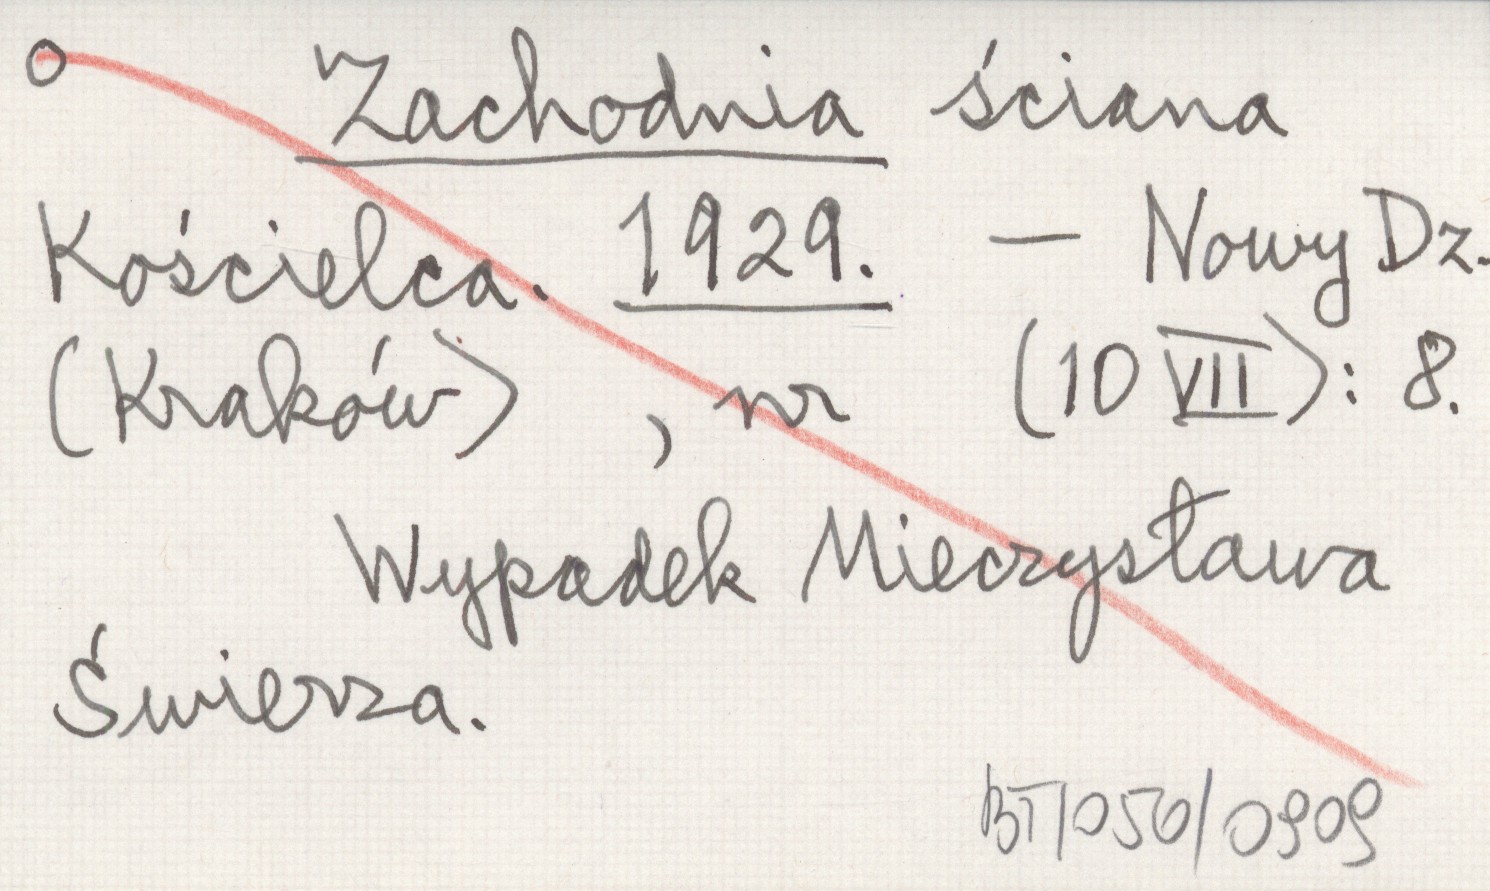 Zachodnia ściana
Kościelca. 1929. — Nowy Dz.
(Kraków) , nr (10 VII): 8.
Wypadek Mieczysława
Świerza.
BT/050/0909